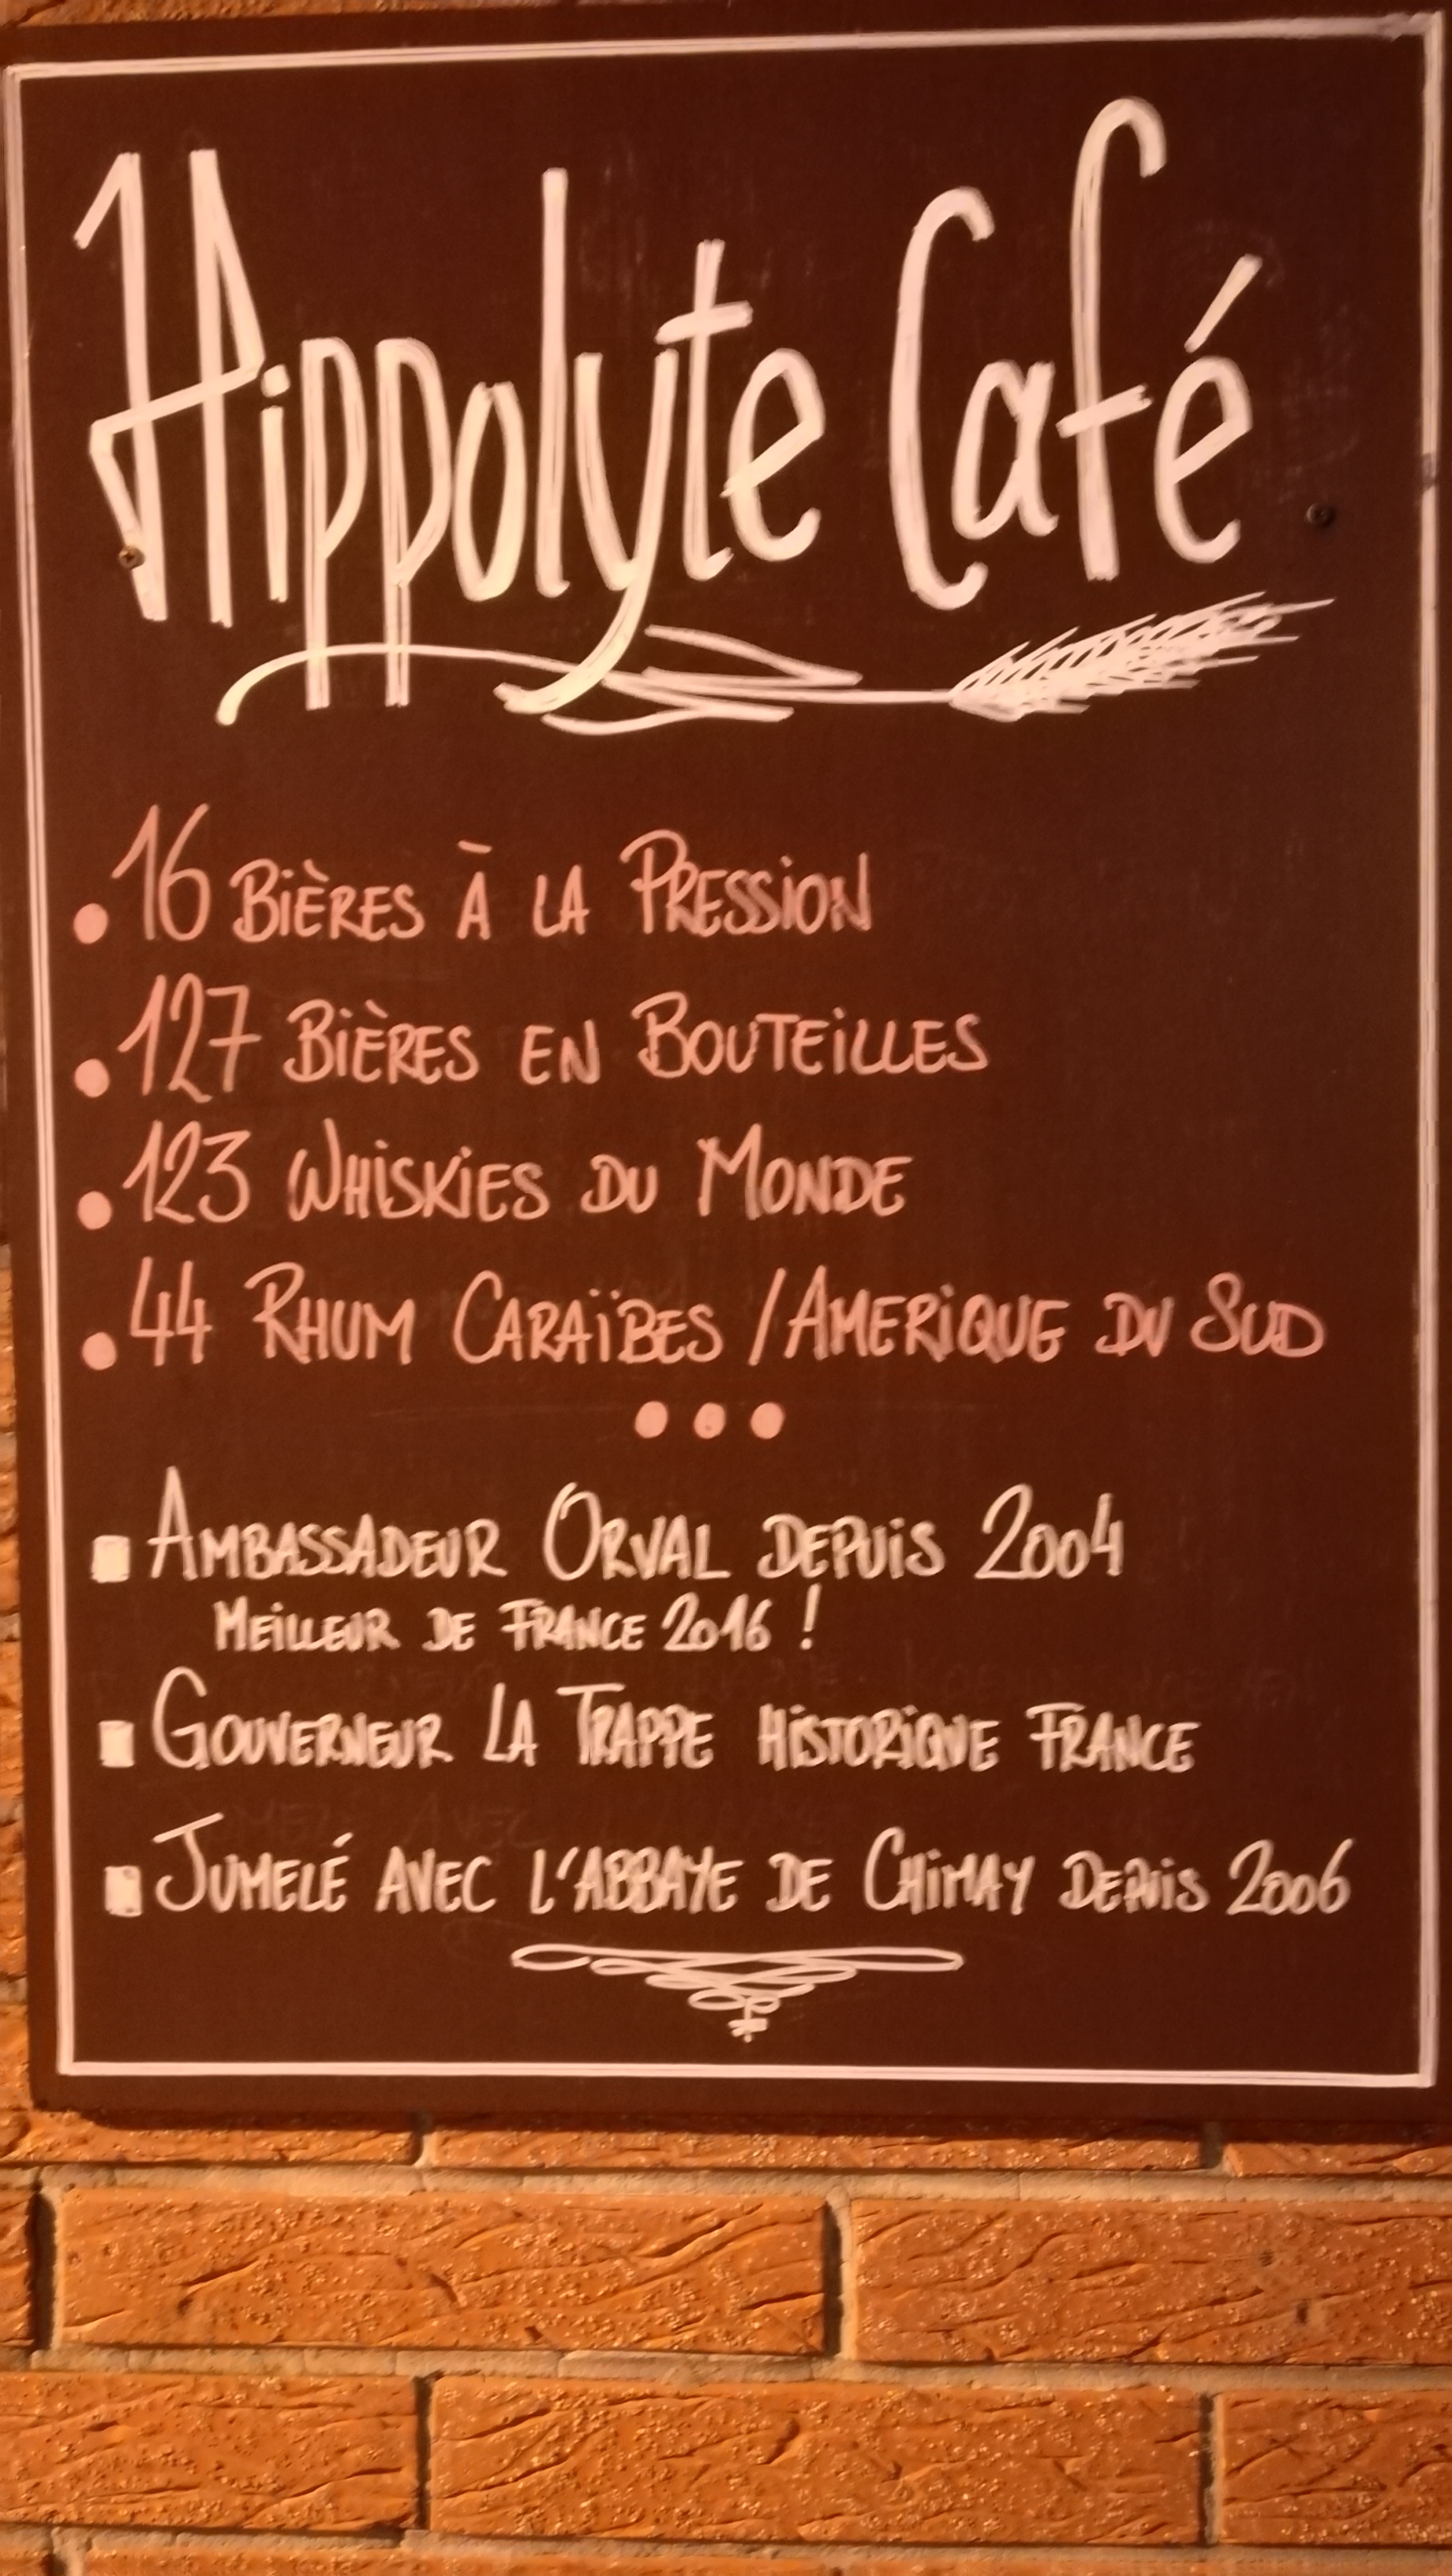 Hippolyte Café
16 BIÈRES À LA PRESSION
127 BIÈRES EN BOUTEILLES
123 WHISKIES DU MONDE
44 RHUM CARAÏBES / AMERIQUE DU SUD
AMBASSADEUR ORVAL DEPUIS 2004
MEILLEUR DE FRANCE 2016 !
GOUVERNEUR LA TRAPPE HISTORIQUE FRANCE
JUMELÉ AVEC L'ABBAYE DE CHIMAY DEPUIS 2006